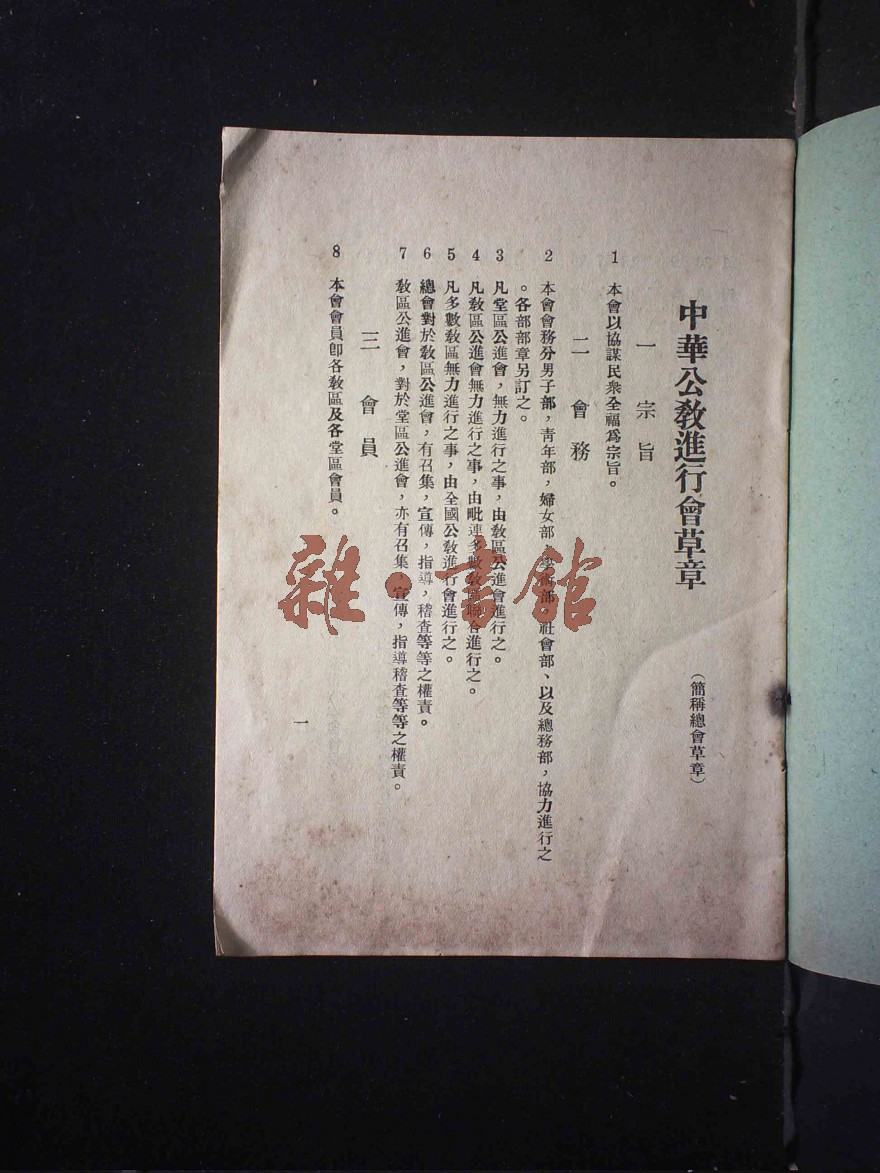 中華公教進行會草章
（簡稱總會草章）
一 宗旨
1 本會以協謀民衆全福爲宗旨。
二 會務
2 本會會務分男子部，靑年部，婦女部，學術部，社會部、以及總務部，協力進行之
。各部部章另訂之。
3 凡堂區公進會，無力進行之事，由敎區公進會進行之。
4 凡敎區公進會無力進行之事，由毗連多數敎區聯合進行之。
5 凡多數敎區無力進行之事，由全國公敎進行會進行之。
6 總會對於敎區公進會，有召集，宣傳，指導，稽查等等之權責。
7 敎區公進會，對於堂區公進會，亦有召集，宣傳，指導稽查等等之權責。
三 會員
8 本會會員卽各敎區及各堂區會員。
一
雜·書館